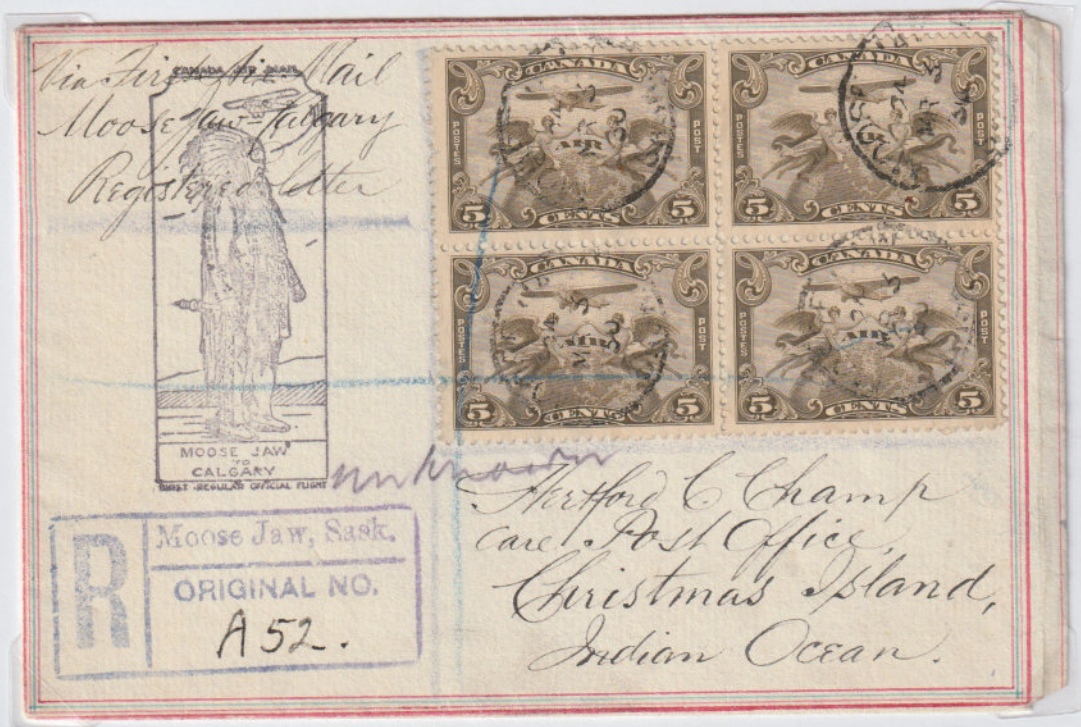 Via First Air Mail
Moose Jaw-Calgary
Registered letter
CANADA AIR MAIL
MOOSE JAW
TO
CALGARY
FIRST REGULAR OFFICIAL FLIGHT
CANADA
POSTES
AIR
POST
5 CENTS 5
CANADA
POSTES
AIR
POST
5 CENTS 5
CANADA
POSTES
AIR
POST
5 CENTS 5
CANADA
POSTES
AIR
POST
5 CENTS 5
unknown
R
Moose Jaw, Sask.
ORIGINAL NO.
A 52.
Hertford C Champ
Care Post Office,
Christmas Island,
Indian Ocean.